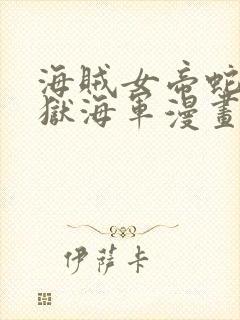 海賊女帝蛇
獄海軍漫畫
伊薩卡